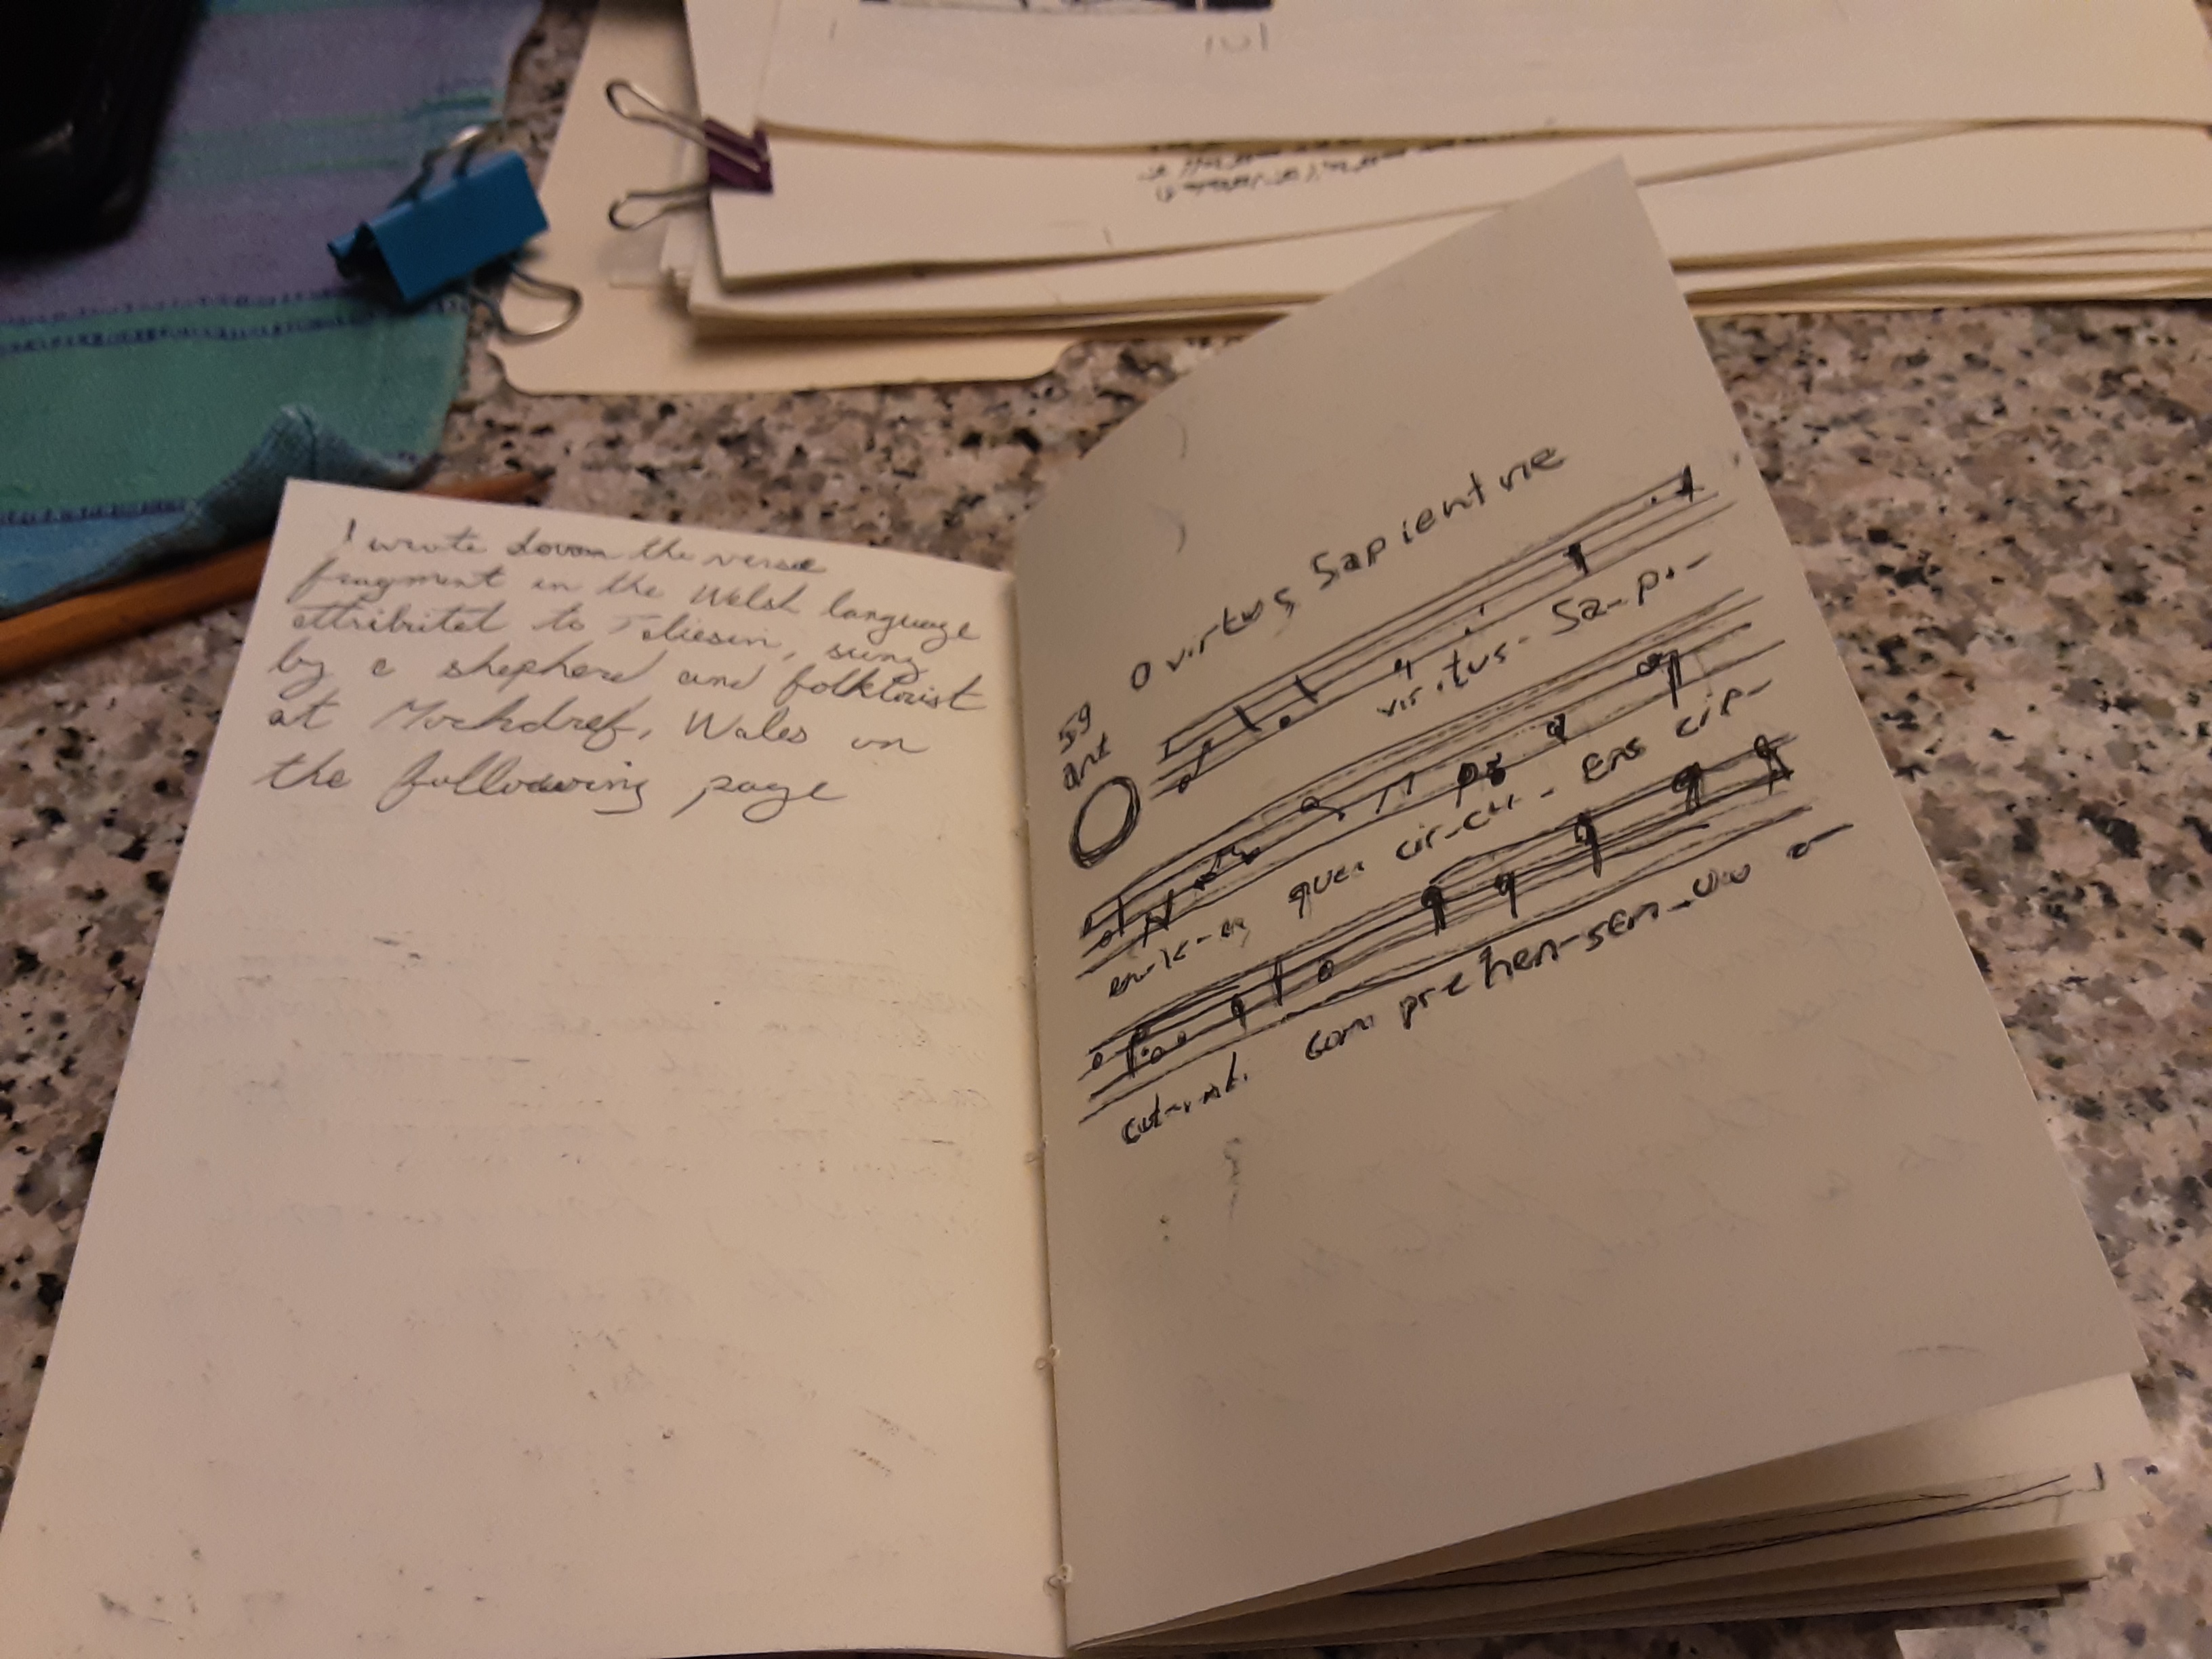 I wrote down the verse
fragment in the Welsh language
attributed to Taliesin, sung
by a shepherd and folklorist
at Mochdref, Wales on
the following page
O virtus Sapientiae
59
ant
O
virtus- Sa-pi-
que cir-cu- ens cir-
com prehen-sen-do o-